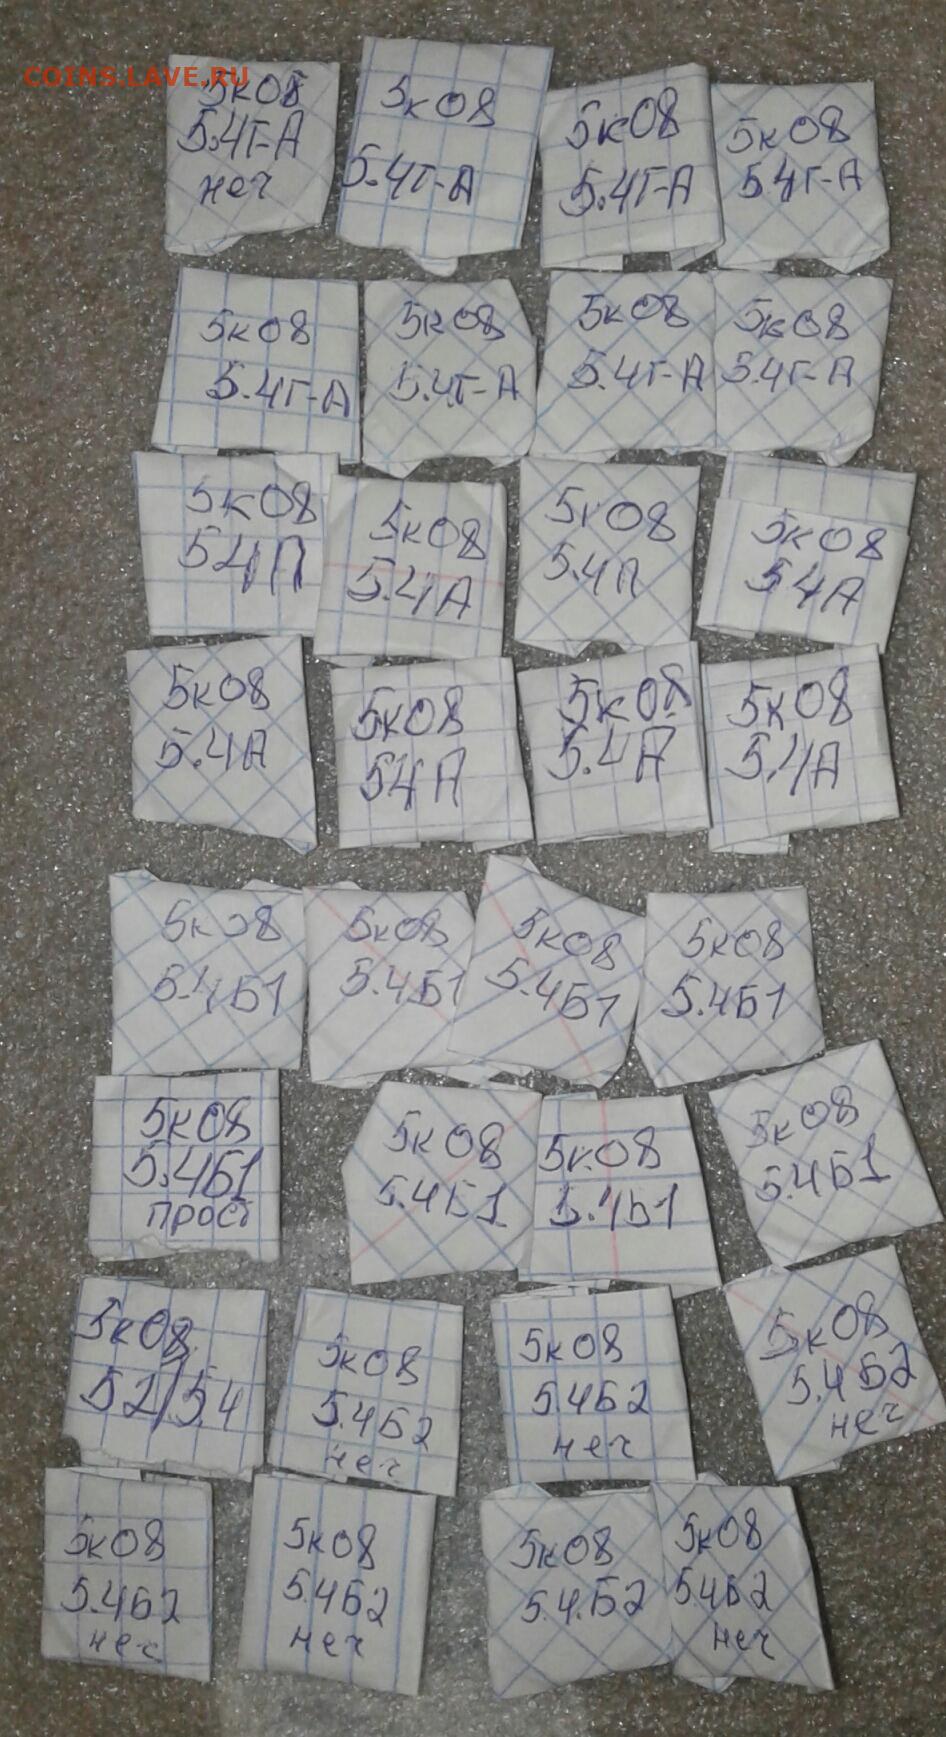 COINS.LAVE.RU
5к08
5.4Г-А
неч
5к08
5.4Г-А
5к08
5.4Г-А
5к08
5.4Г-А
5к08
5.4Г-А
5к08
5.4Г-А
5к08
5.4Г-А
5к08
5.4Г-А
5к08
5.4П
5к08
5.4А
5к08
5.4П
5к08
5.4А
5к08
5.4А
5к08
5.4А
5к08
5.4А
5к08
5.4А
5к08
5.4Б1
5к08
5.4Б1
5к08
5.4Б1
5к08
5.4Б1
5к08
5.4Б1
прост
5к08
5.4Б1
5к08
5.4Б1
5к08
5.4Б1
5к08
5.2/5.4
5к08
5.4Б2
неч
5к08
5.4Б2
неч
5к08
5.4Б2
неч
5к08
5.4Б2
неч
5к08
5.4Б2
неч
5к08
5.4.Б2
5к08
5.4Б2
неч